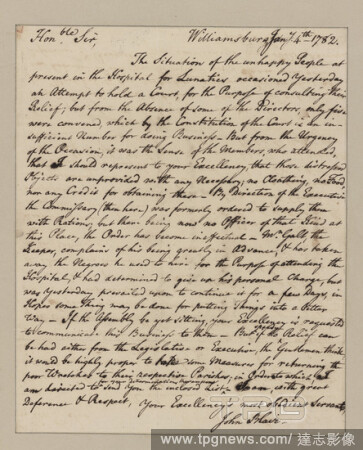 Hon.ble Sir,
Williamsburg Jany. 4th 1782.
The Situation of the unhappy People at
present in the Hospital for Lunatics occasioned Yesterday
an Attempt to hold a Court, for the Purpose of consulting their
Relief; but from the Absence of some of the Directors, only five
were convened, which by the Constitution of the Court is an in-
sufficient Number for doing Business - But from the Urgency
of the Occasion, it was the Sense of the Members, who attended,
that I should represent to your Excellency, that those distressed
Objects are unprovided with any Necessary, no Cloathing, no Food,
nor any Credit for obtaining these - By Direction of the Executive
the Commissary (then here) was formerly ordered to supply them
with Rations, but there being now no Officer of that Kind at
this Place, the Order has become ineffectual - Mr. Galt the
Keeper, complains of his being greatly in Advance, & has taken
away the Negroes he used to hire for the Purpose of attending the
Hospital, & had determined to give up his personal Charge, but
was Yesterday prevailed upon to continue it for a few Days, in
Hopes some thing may be done for putting Things into a better
Way - If the Assembly be yet sitting, your Excellency is requested
to communicate this Business to them - But if no Relief can
be had either from the Legislative or Executive, the Gentlemen think
it would be highly proper to take some Measures for returning the
poor Wretches to their respective Parishes, in Order to which I
am directed to send you the inclosed List. I am with great
Deference & Respect, Your Excellency's most obedient Servant,
John Blair.
www.tpgnews.com / 達志影像